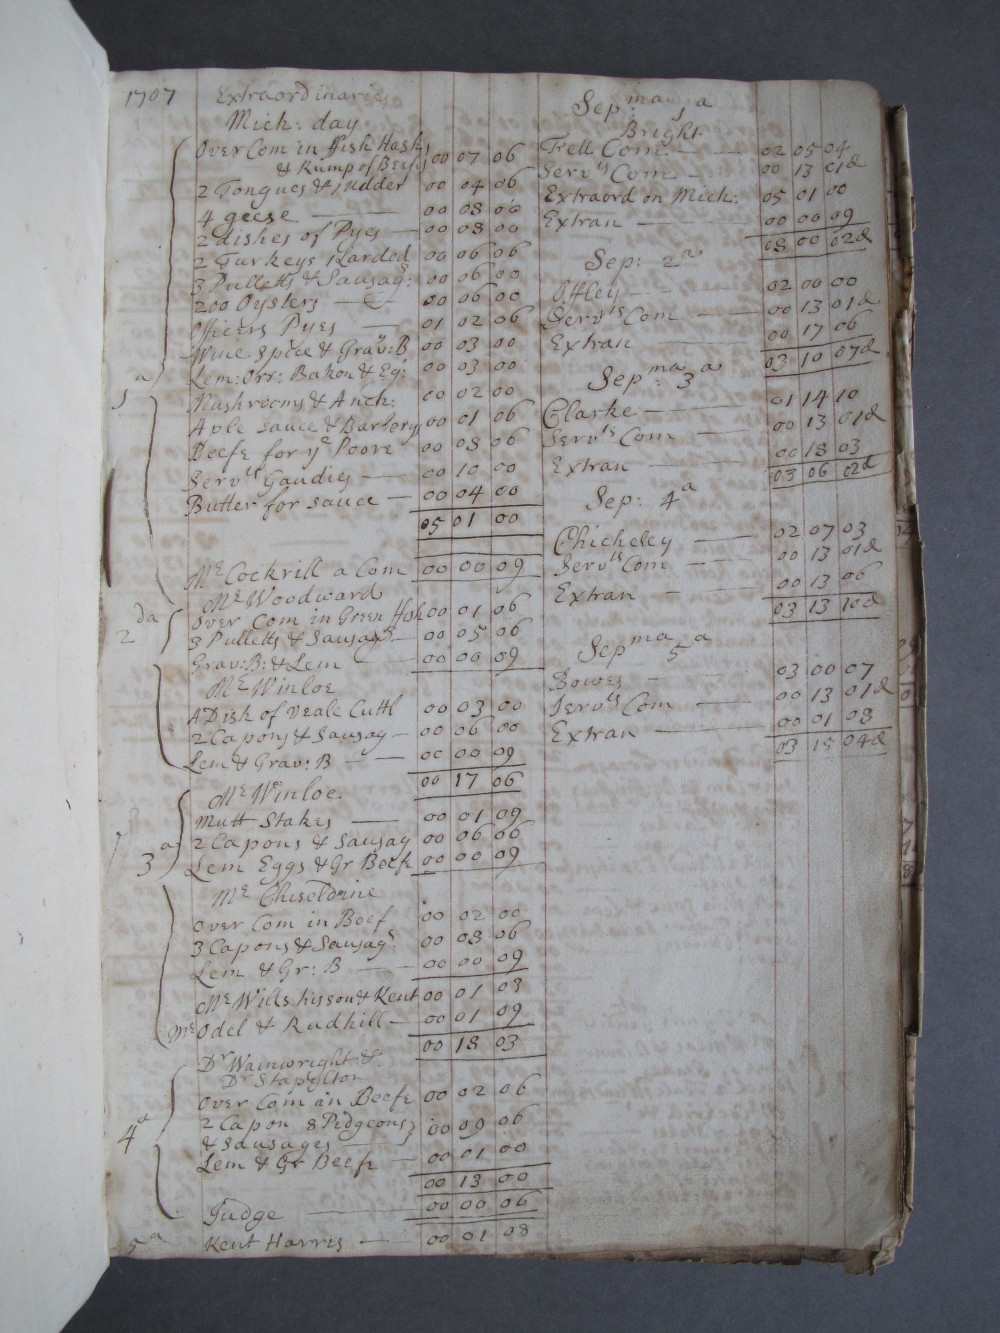 1707
Extraordinaries
Mich: day
Over Com in ffish Hashs
& Rump of Beefe 00 07 06
2 Tongues & Udder 00 04 06
4 geese 00 08 00
2 dishes of Pyes 00 08 00
2 Turkeys 1 Larded 00 06 06
3 Pulletts & Sausags: 00 06 00
200 Oysters 00 06 00
Officers Pyes 01 02 06
Wine Spice & Grav: B 00 03 00
Lem: Orr: Bakon & Eg: 00 03 00
1a
Mushrooms & Anch: 00 02 00
Aple Sauce & Barberys 00 01 06
Beefe for ye Poore 00 08 06
Servts Gaudies 00 10 00
Butter for sauce 00 04 00
05 01 00
Mr Cockrill a Com 00 00 09
Mr Woodward
2da
Over Com in Green ffish 00 01 06
3 Pulletts & Sausags 00 05 06
Grav: B: & Lem 00 00 09
Mr Winloe
A Dish of Veale Cuttl 00 03 00
2 Capons & Sausag 00 06 00
Lem & Grav: B 00 00 09
00 17 06
Mr Winloe
Mutt Stakes 00 01 09
2 Capons & Sausag 00 06 00
3a
Lem Eggs & Gr Beefe 00 00 09
Mr Chiseldine
Over Com in Beef 00 02 00
3 Capons & Sausags 00 08 06
Lem & Gr: B 00 00 09
Mr Wills hisson & Kent 00 01 03
Mr Odel & Rudhill 00 01 09
00 18 03
Dr Wainwright &
Dr Stapylton
Over Com in Beefe 00 02 06
4a
2 Capon 8 Pidgeons
& Sausages 00 09 06
Lem & Gr Beefe 00 01 00
00 13 00
Judge 00 00 06
5a
Kent Harris 00 01 08
Sepma: 1a
Bright
Fell Com. 02 05 04
Servts Com 00 13 01d
Extraord on Mich: 05 01 00
Extran 00 00 09
08 00 02d
Sep: 2a
Offley 02 00 00
Servts Com 00 13 01d
Extran 00 17 06
03 10 07d
Sepma: 3a
Clarke 01 14 10
Servts Com 00 13 01d
Extran 00 18 03
03 06 02d
Sep: 4a
Chicheley 02 07 03
Servts Com 00 13 01d
Extran 00 13 06
03 13 10d
Sepma 5a
Bowes 03 00 07
Servts Com 00 13 01d
Extran 00 01 08
03 15 04d